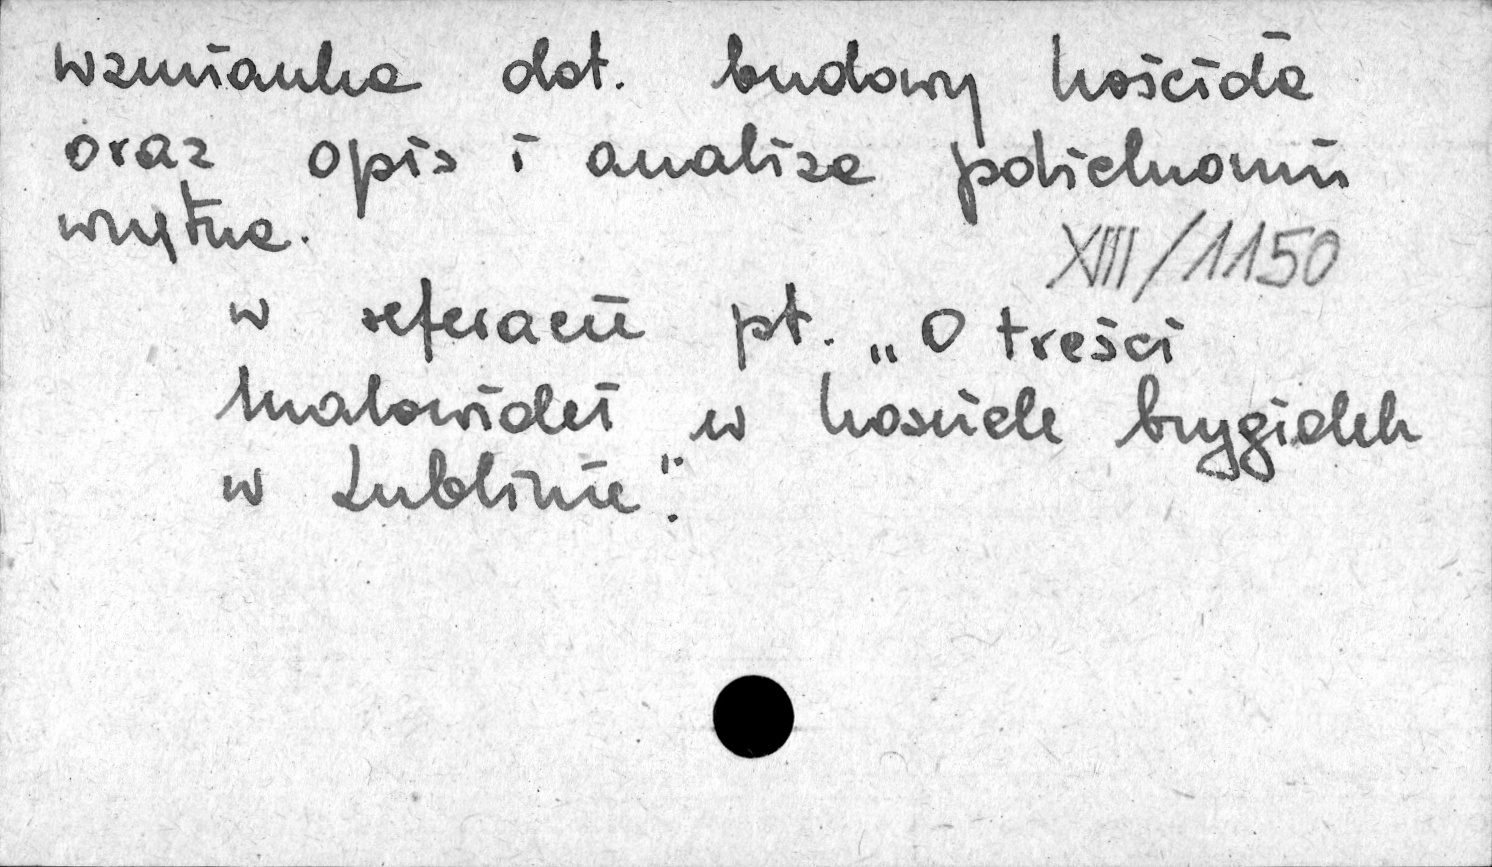 wzmianka dot. budowy kościoła
oraz opis i analiza polichromii
wnętrza.
XIII/1150
w referacie pt. „O treści
malowideł w kościele brygidek
w Lublinie".